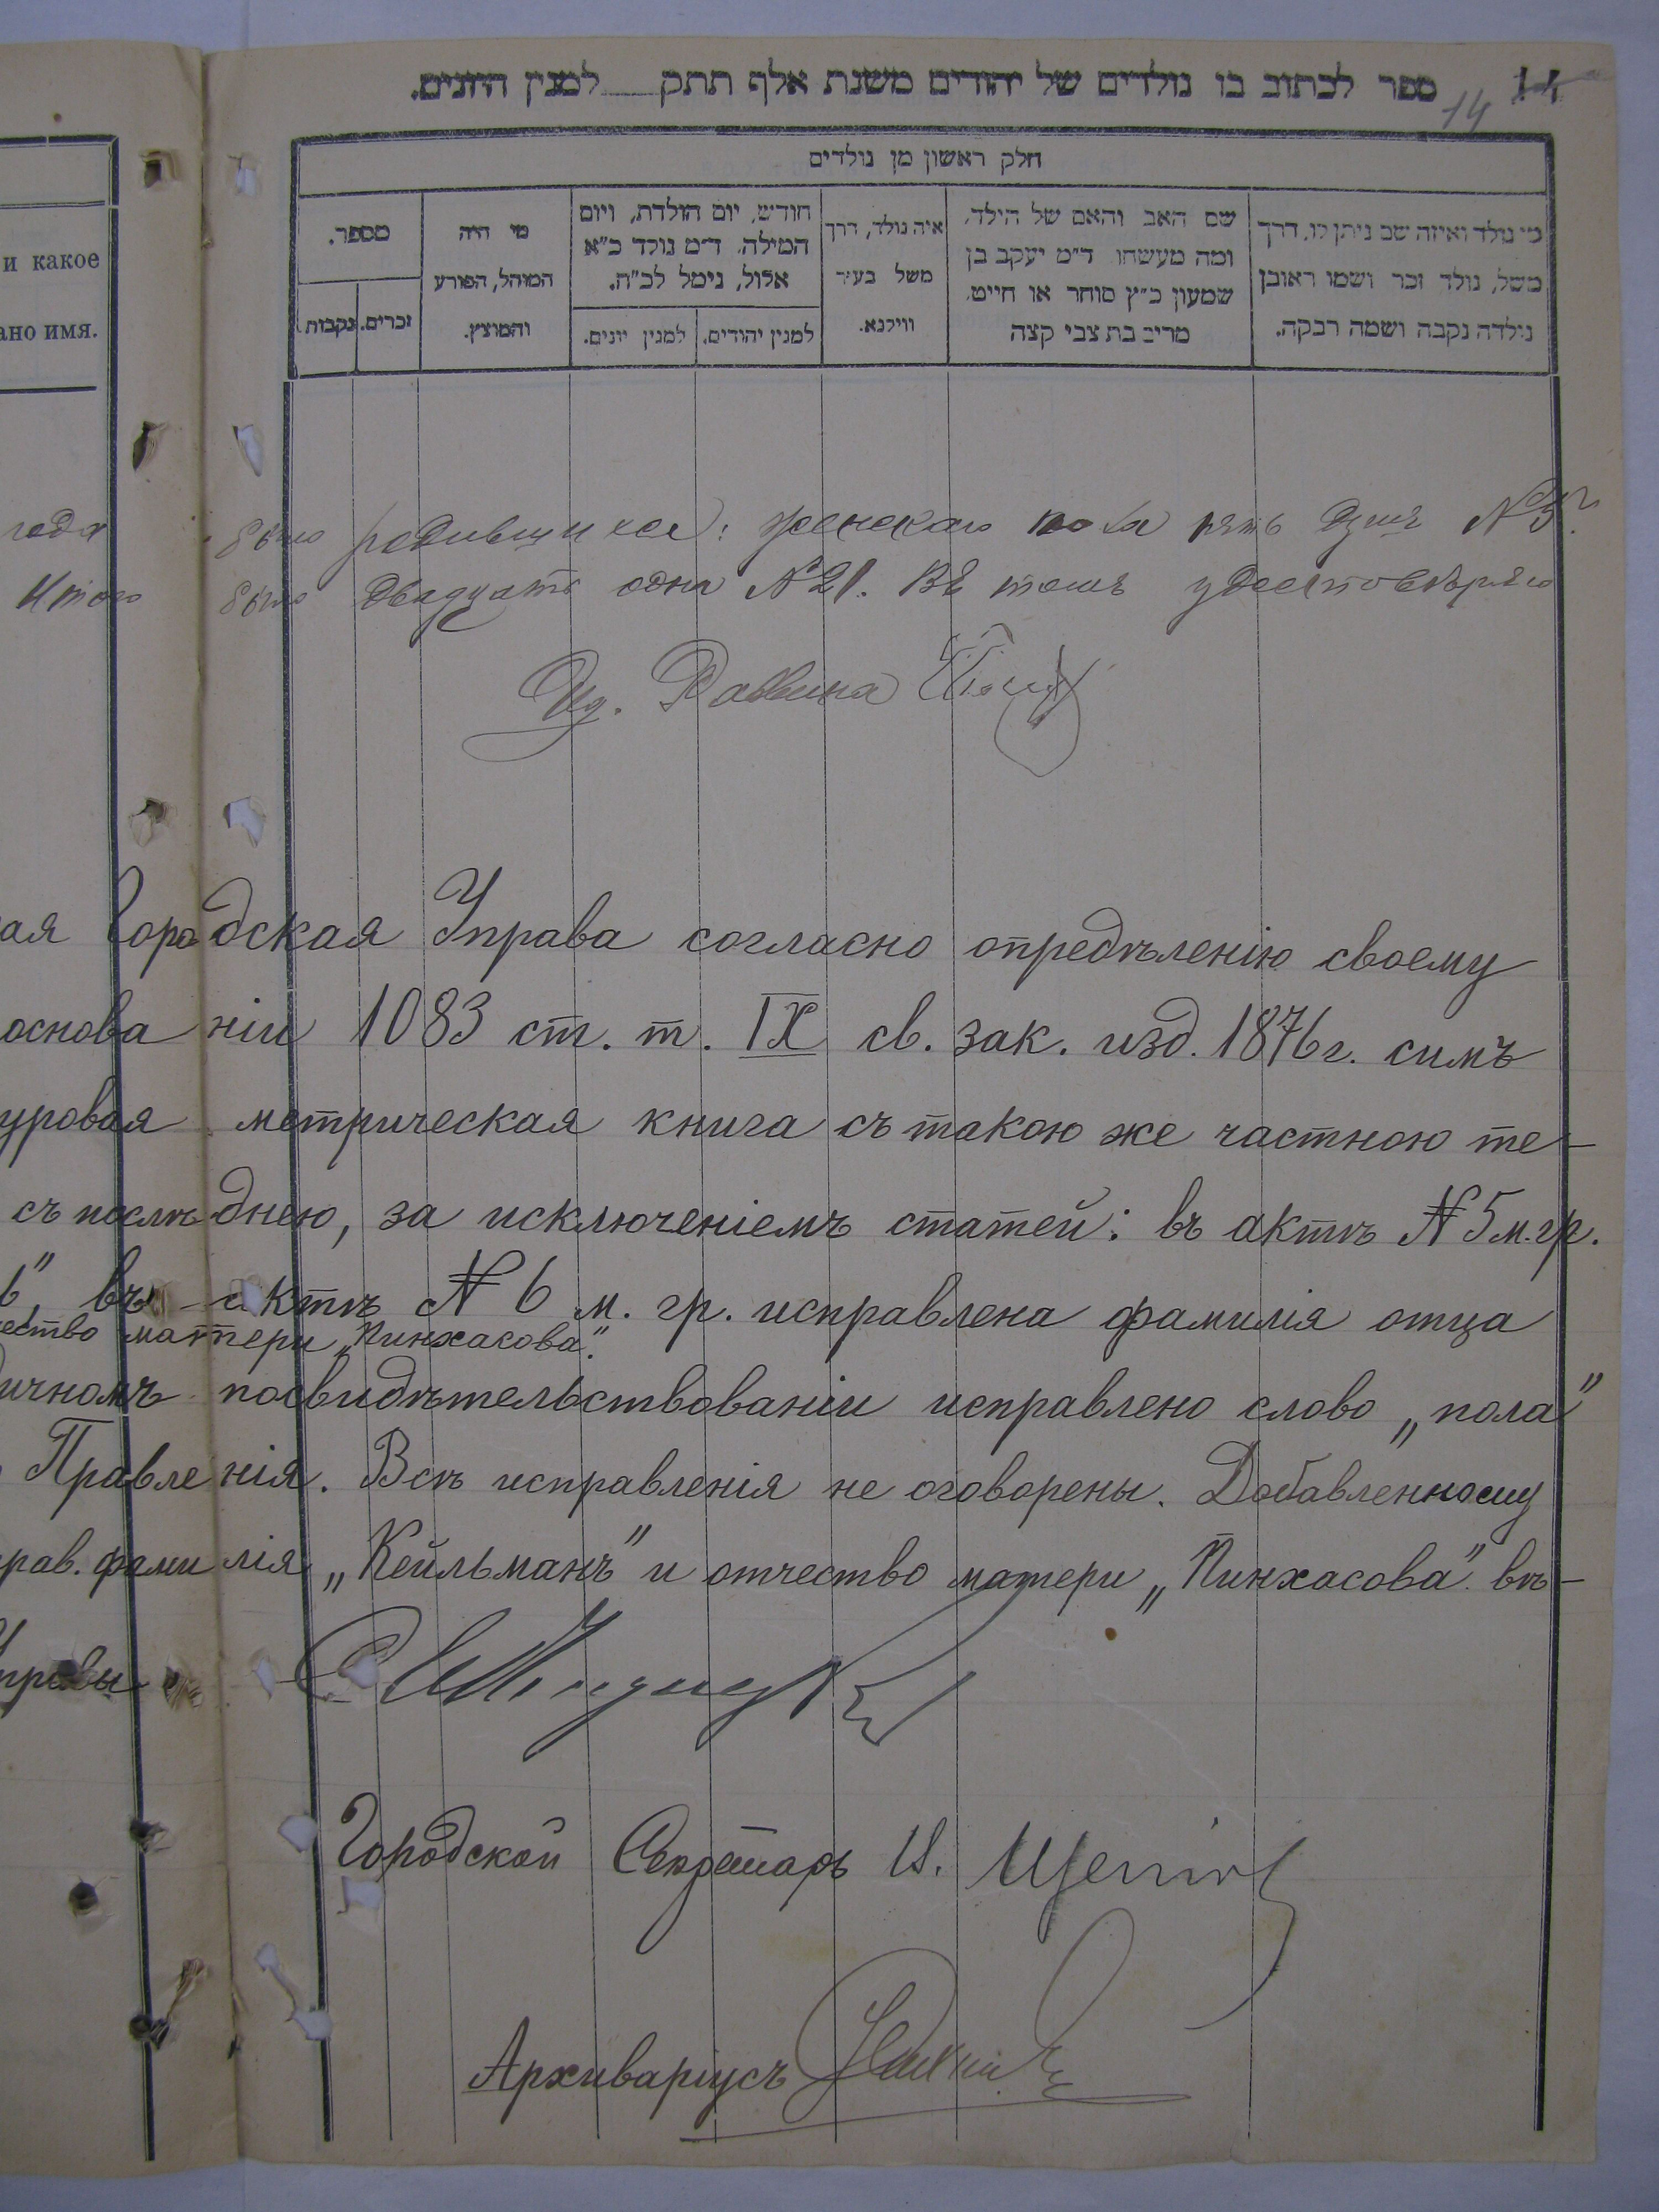 14
ספר לכתוב בו נולדים של יהודים משנת אלף תתק למנין היונים.
חלק ראשון מן נולדים
מי נולד ואיזה שם ניתן לו, דרך משל, נולד זכר ושמו ראובן נולדה נקבה ושמה רבקה.
שם האב והאם של הילד, ומה מעשהו ד״מ יעקב בן שמעון כ״ץ סוחר או חייט, מרים בת צבי קצה
איה נולד, דרך משל בעיר ווילנא.
חודש, יום הולדת, ויום המילה, ד״מ נולד כ״א אלול, נימל לכ״ח.
למנין יהודים.
למנין יונים.
מי היה המוהל, הפורע והמוצץ.
מספר.
זכרים.
נקבות.
и какое
ано имя.
года было родившихся: женскаго пола пять душ №5.
Итого было двадцать одна №21. Въ томъ удостовѣряю
Раввина
ая Городская Управа согласно опредѣленію своему
основаніи 1083 ст. т. IX св. зак. изд. 1876 г. симъ
уровая метрическая книга съ такою же частною те-
съ послѣднею, за исключеніемъ статей: въ актѣ № 5 м. гр.
въ актѣ № 6 м. гр. исправлена фамилія отца
ество матери „Пинхасова".
ичномъ посвидѣтельствованіи исправлено слово „пола"
Правленія. Всѣ исправленія не оговорены. Добавленному
рав. фамилія „Кейльманъ" и отчество матери „Пинхасова". вѣ-
правы
Городской Секретарь И.
Архиваріусъ